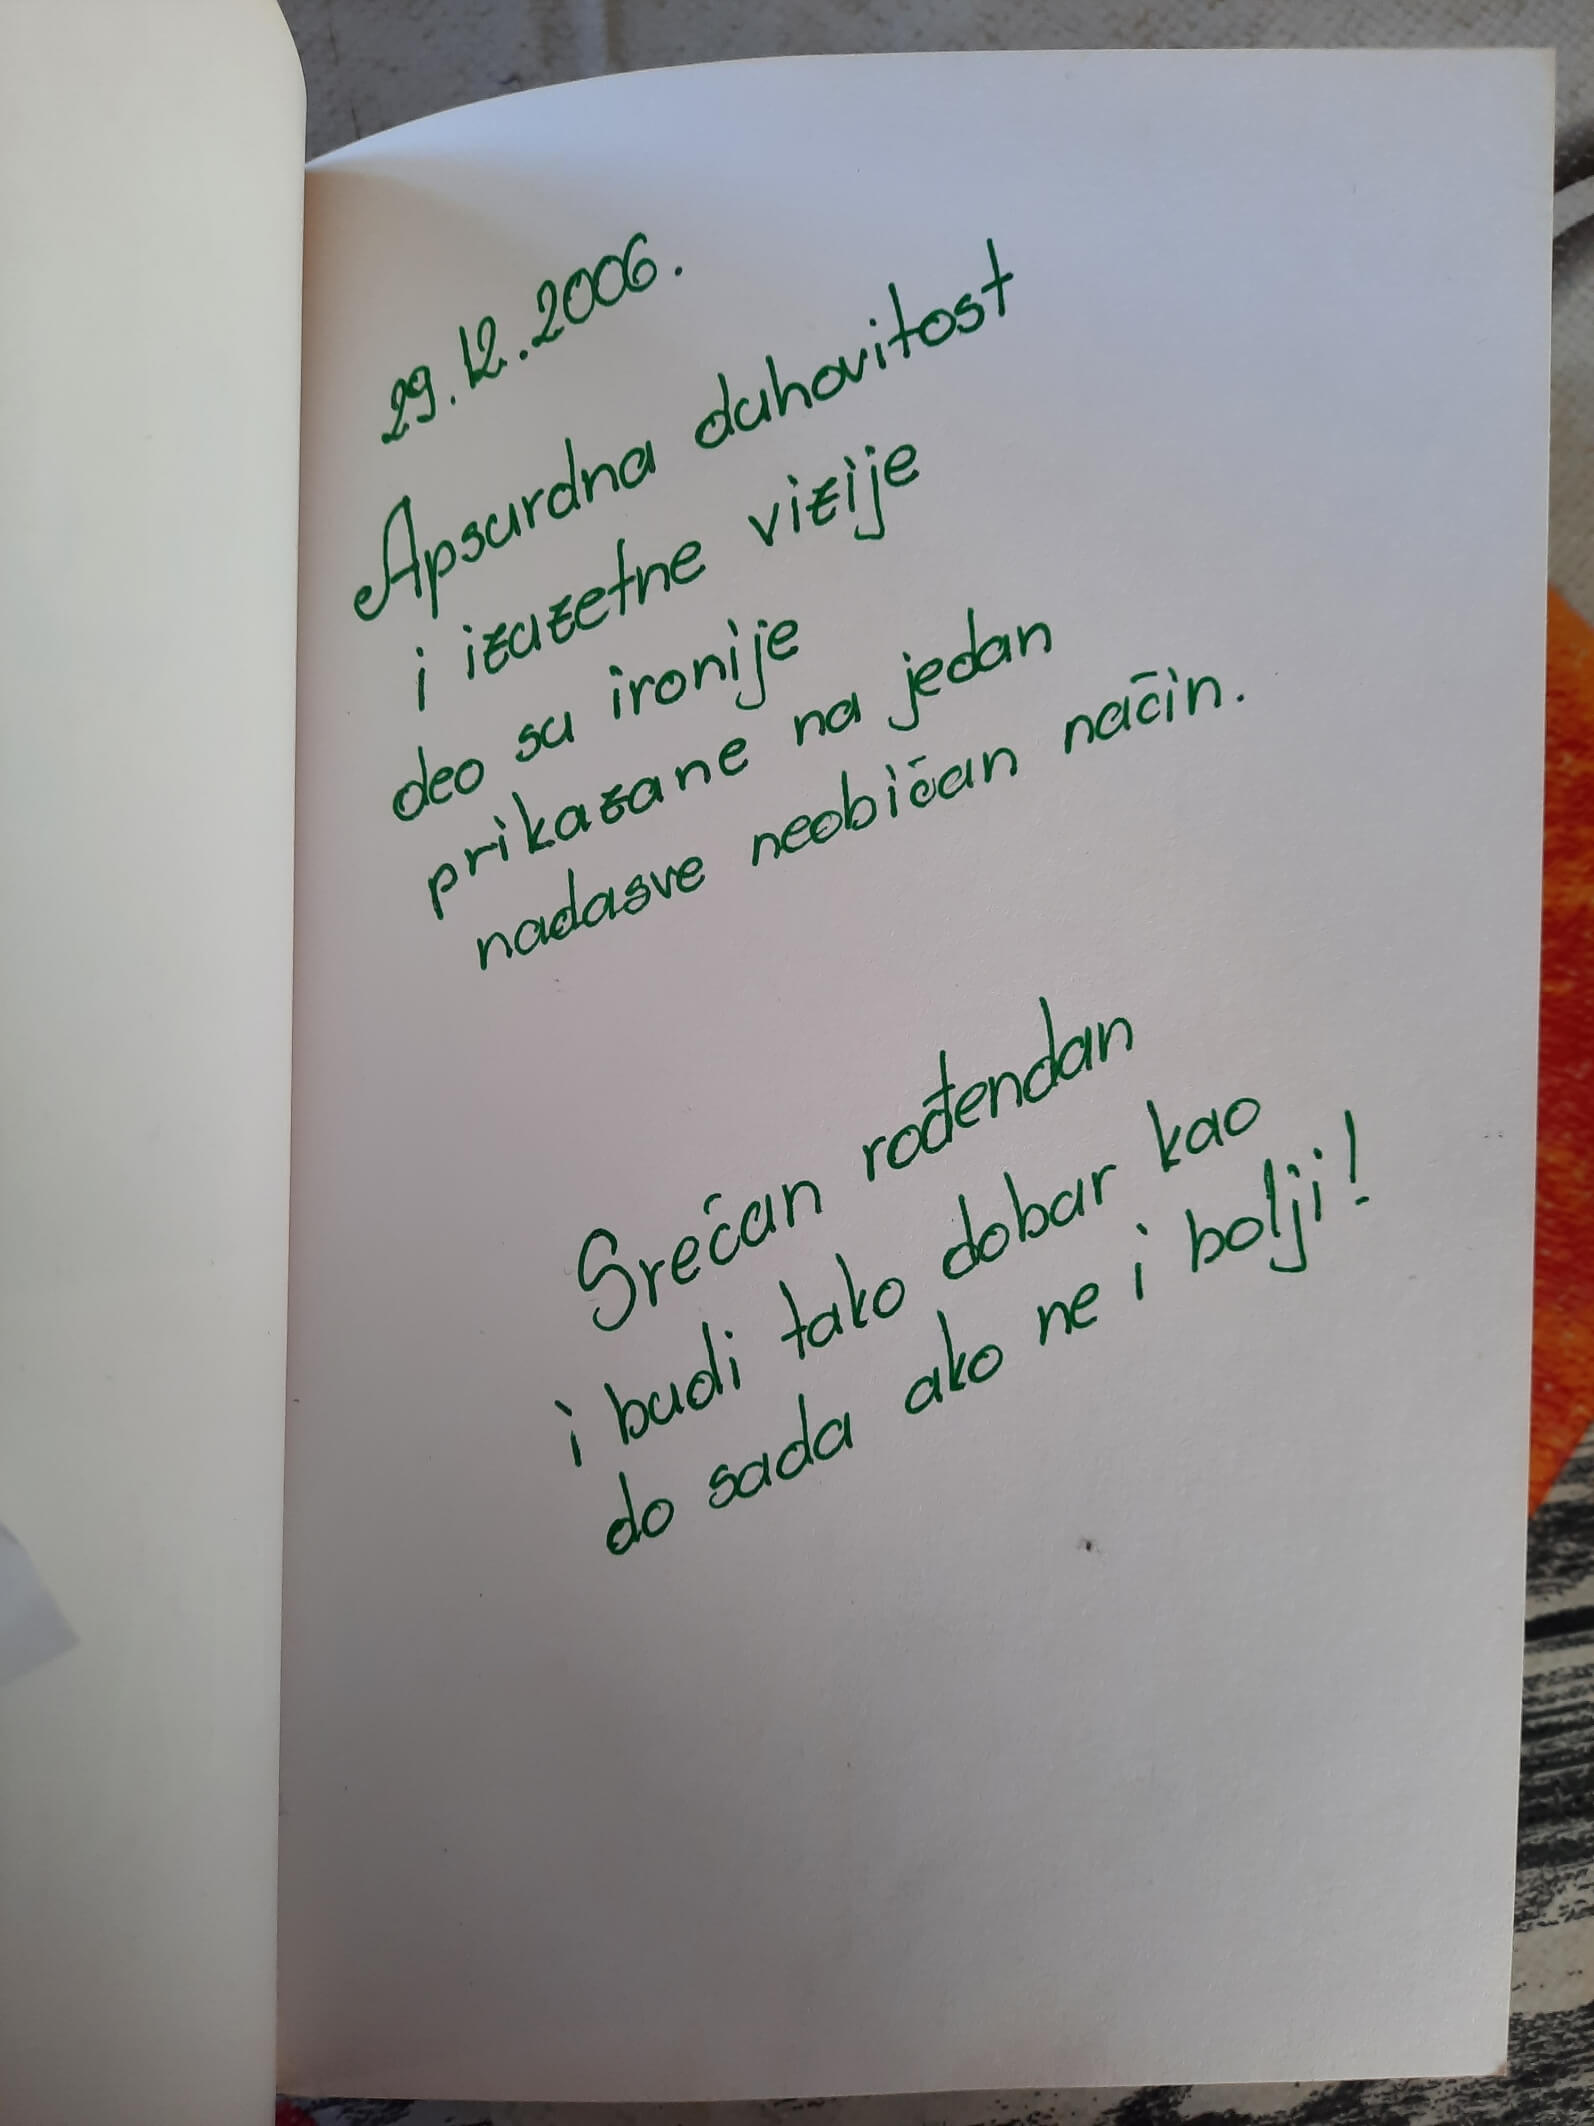 29.12.2006.
Apsurdna duhovitost
i izuzetne vizije
deo su ironije
prikazane na jedan
nadasve neobičan način.
Srećan rođendan
i budi tako dobar kao
do sada ako ne i bolji!